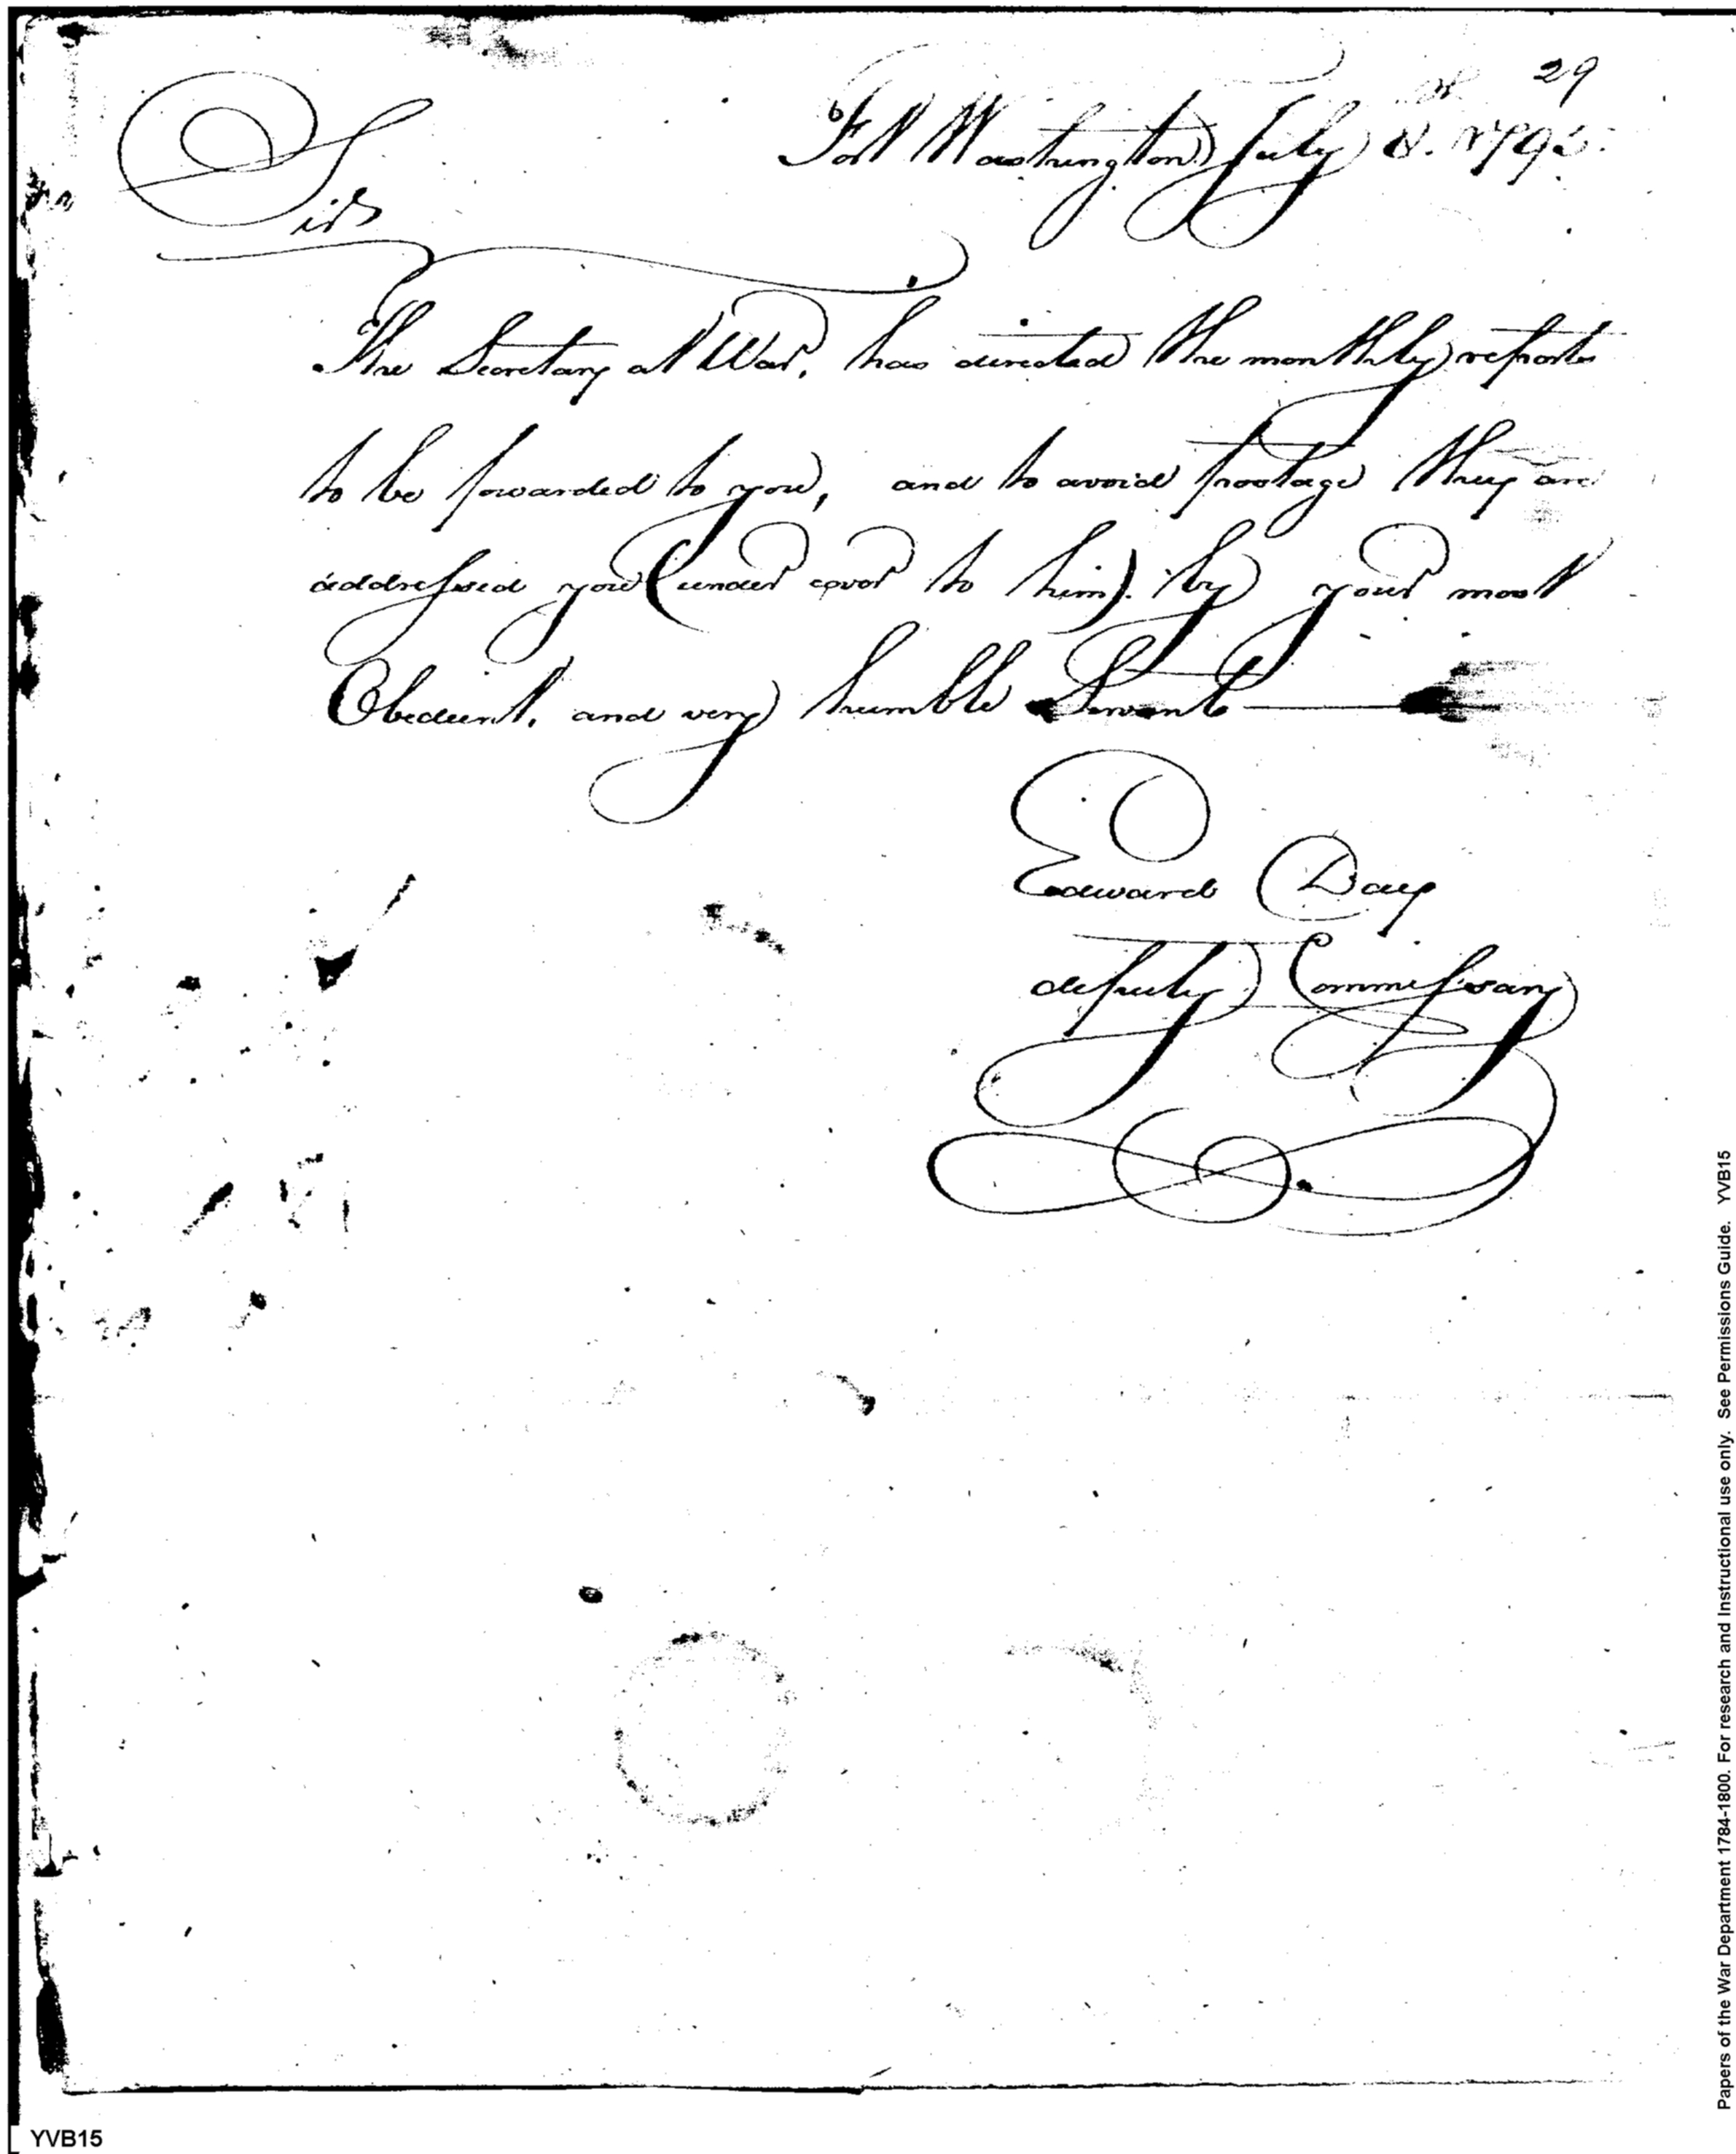 29
Fort Washington July 8. 1793.
Sir
The Secretary at War, has directed the monthly reports
to be forwarded to you, and to avoid postage they are
addressed you (under cover to him). by your most
Obedient, and very humble Servant
Edward Day
deputy Commissary
Papers of the War Department 1784-1800. For research and Instructional use only. See Permissions Guide. YVB15
YVB15